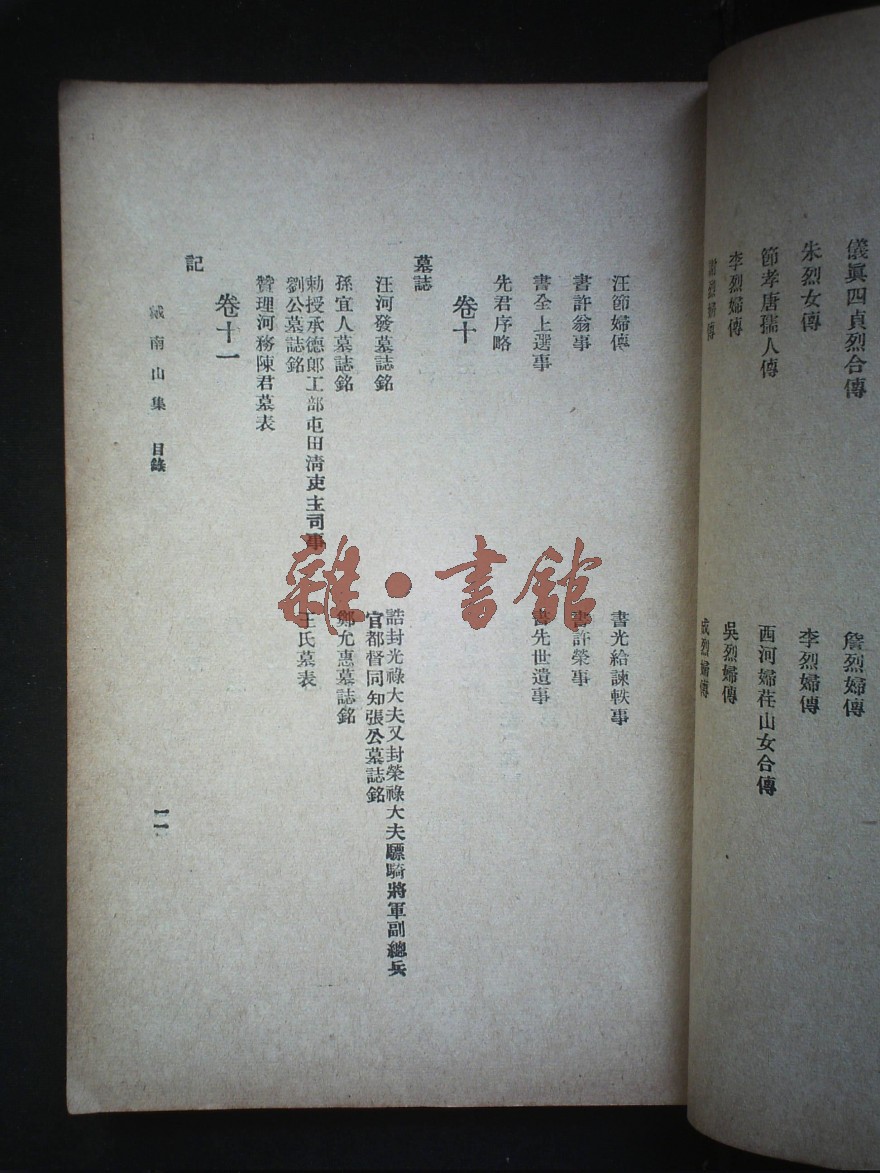 儀眞四貞烈合傳
詹烈婦傳
朱烈女傳
李烈婦傳
節孝唐孺人傳
西河婦荏山女合傳
李烈婦傳
吳烈婦傳
謝烈婦傳
成烈婦傳
汪節婦傳
書光給諫軼事
書許翁事
書許榮事
書全上選事
書先世遺事
先君序略
卷十
墓誌
汪河發墓誌銘
誥封光祿大夫又封榮祿大夫驃騎將軍副總兵
官都督同知張公墓誌銘
孫宜人墓誌銘
鄭允惠墓誌銘
勅授承德郎工部屯田清吏主司事
劉公墓誌銘
王氏墓表
贊理河務陳君墓表
卷十一
記
戴南山集 目錄
一一
雜·書館